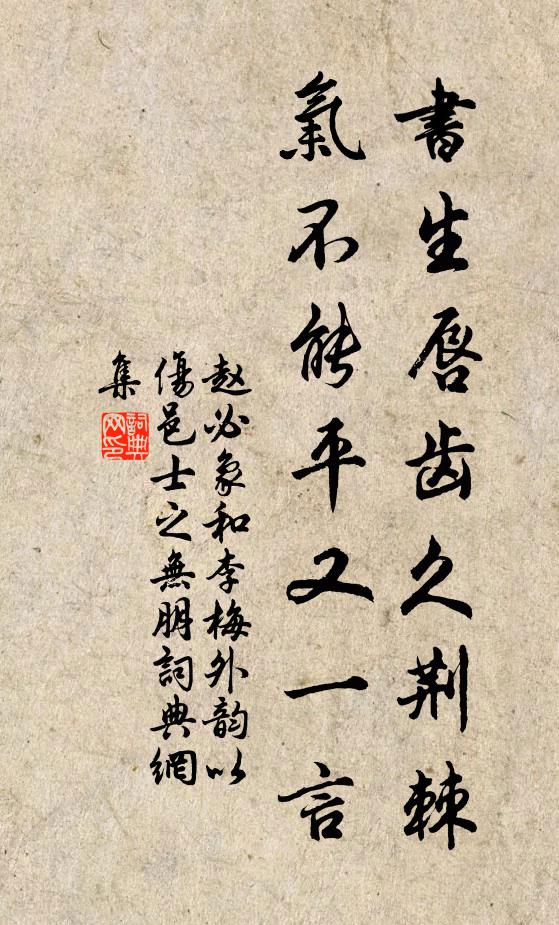 書生唇齿久荆棘
氣不能平又一言
赵必象和李梅外韵以
傷邑士之無朋詞典網
集
詞典
网印